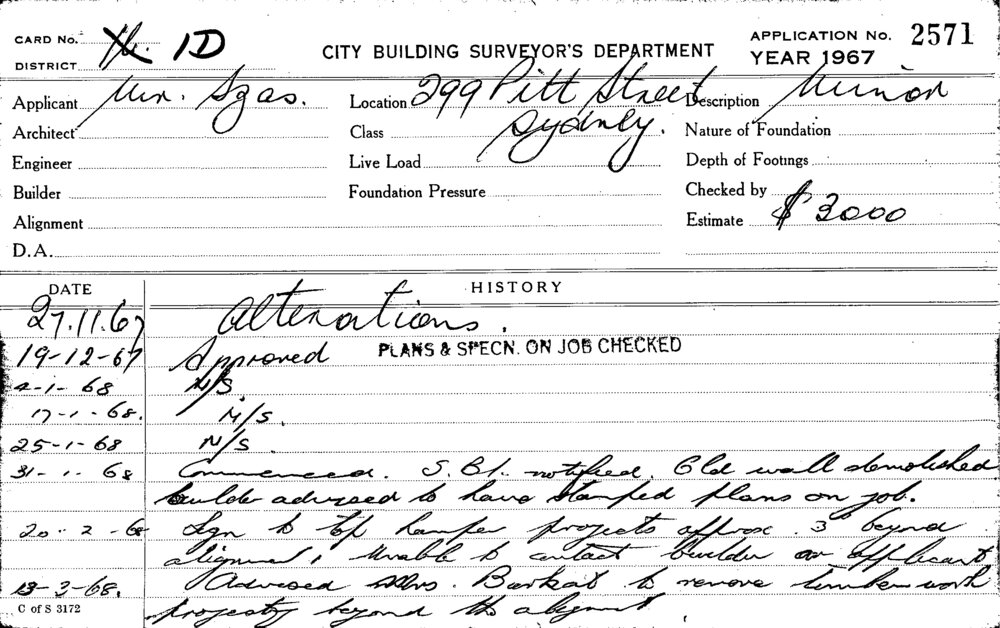 CARD No. 1D
DISTRICT
CITY BUILDING SURVEYOR'S DEPARTMENT
APPLICATION No. 2571
YEAR 1967
Applicant Mr. Szas.
Location 299 Pitt Street
Sydney.
Description Minor
Architect
Class
Nature of Foundation
Engineer
Live Load
Depth of Footings
Builder
Foundation Pressure
Checked by
Alignment
Estimate $3000
D.A.
DATE
HISTORY
27.11.67 Alterations.
19-12-67 Approved PLANS & SPECN. ON JOB CHECKED
4-1-68 N/S.
17-1-68. N/S.
25-1-68 N/S.
31-1-68 Commenced. notified. Old wall demolished
builder advised to have stamped plans on job.
20-2-68 Sgn to top hamper projects approx. 3" beyond
alignment, unable to contact builder or applicant
13-3-68. Advised Mrs. Barkat to remove timber work
projectg beyond the alignmt.
C of S 3172